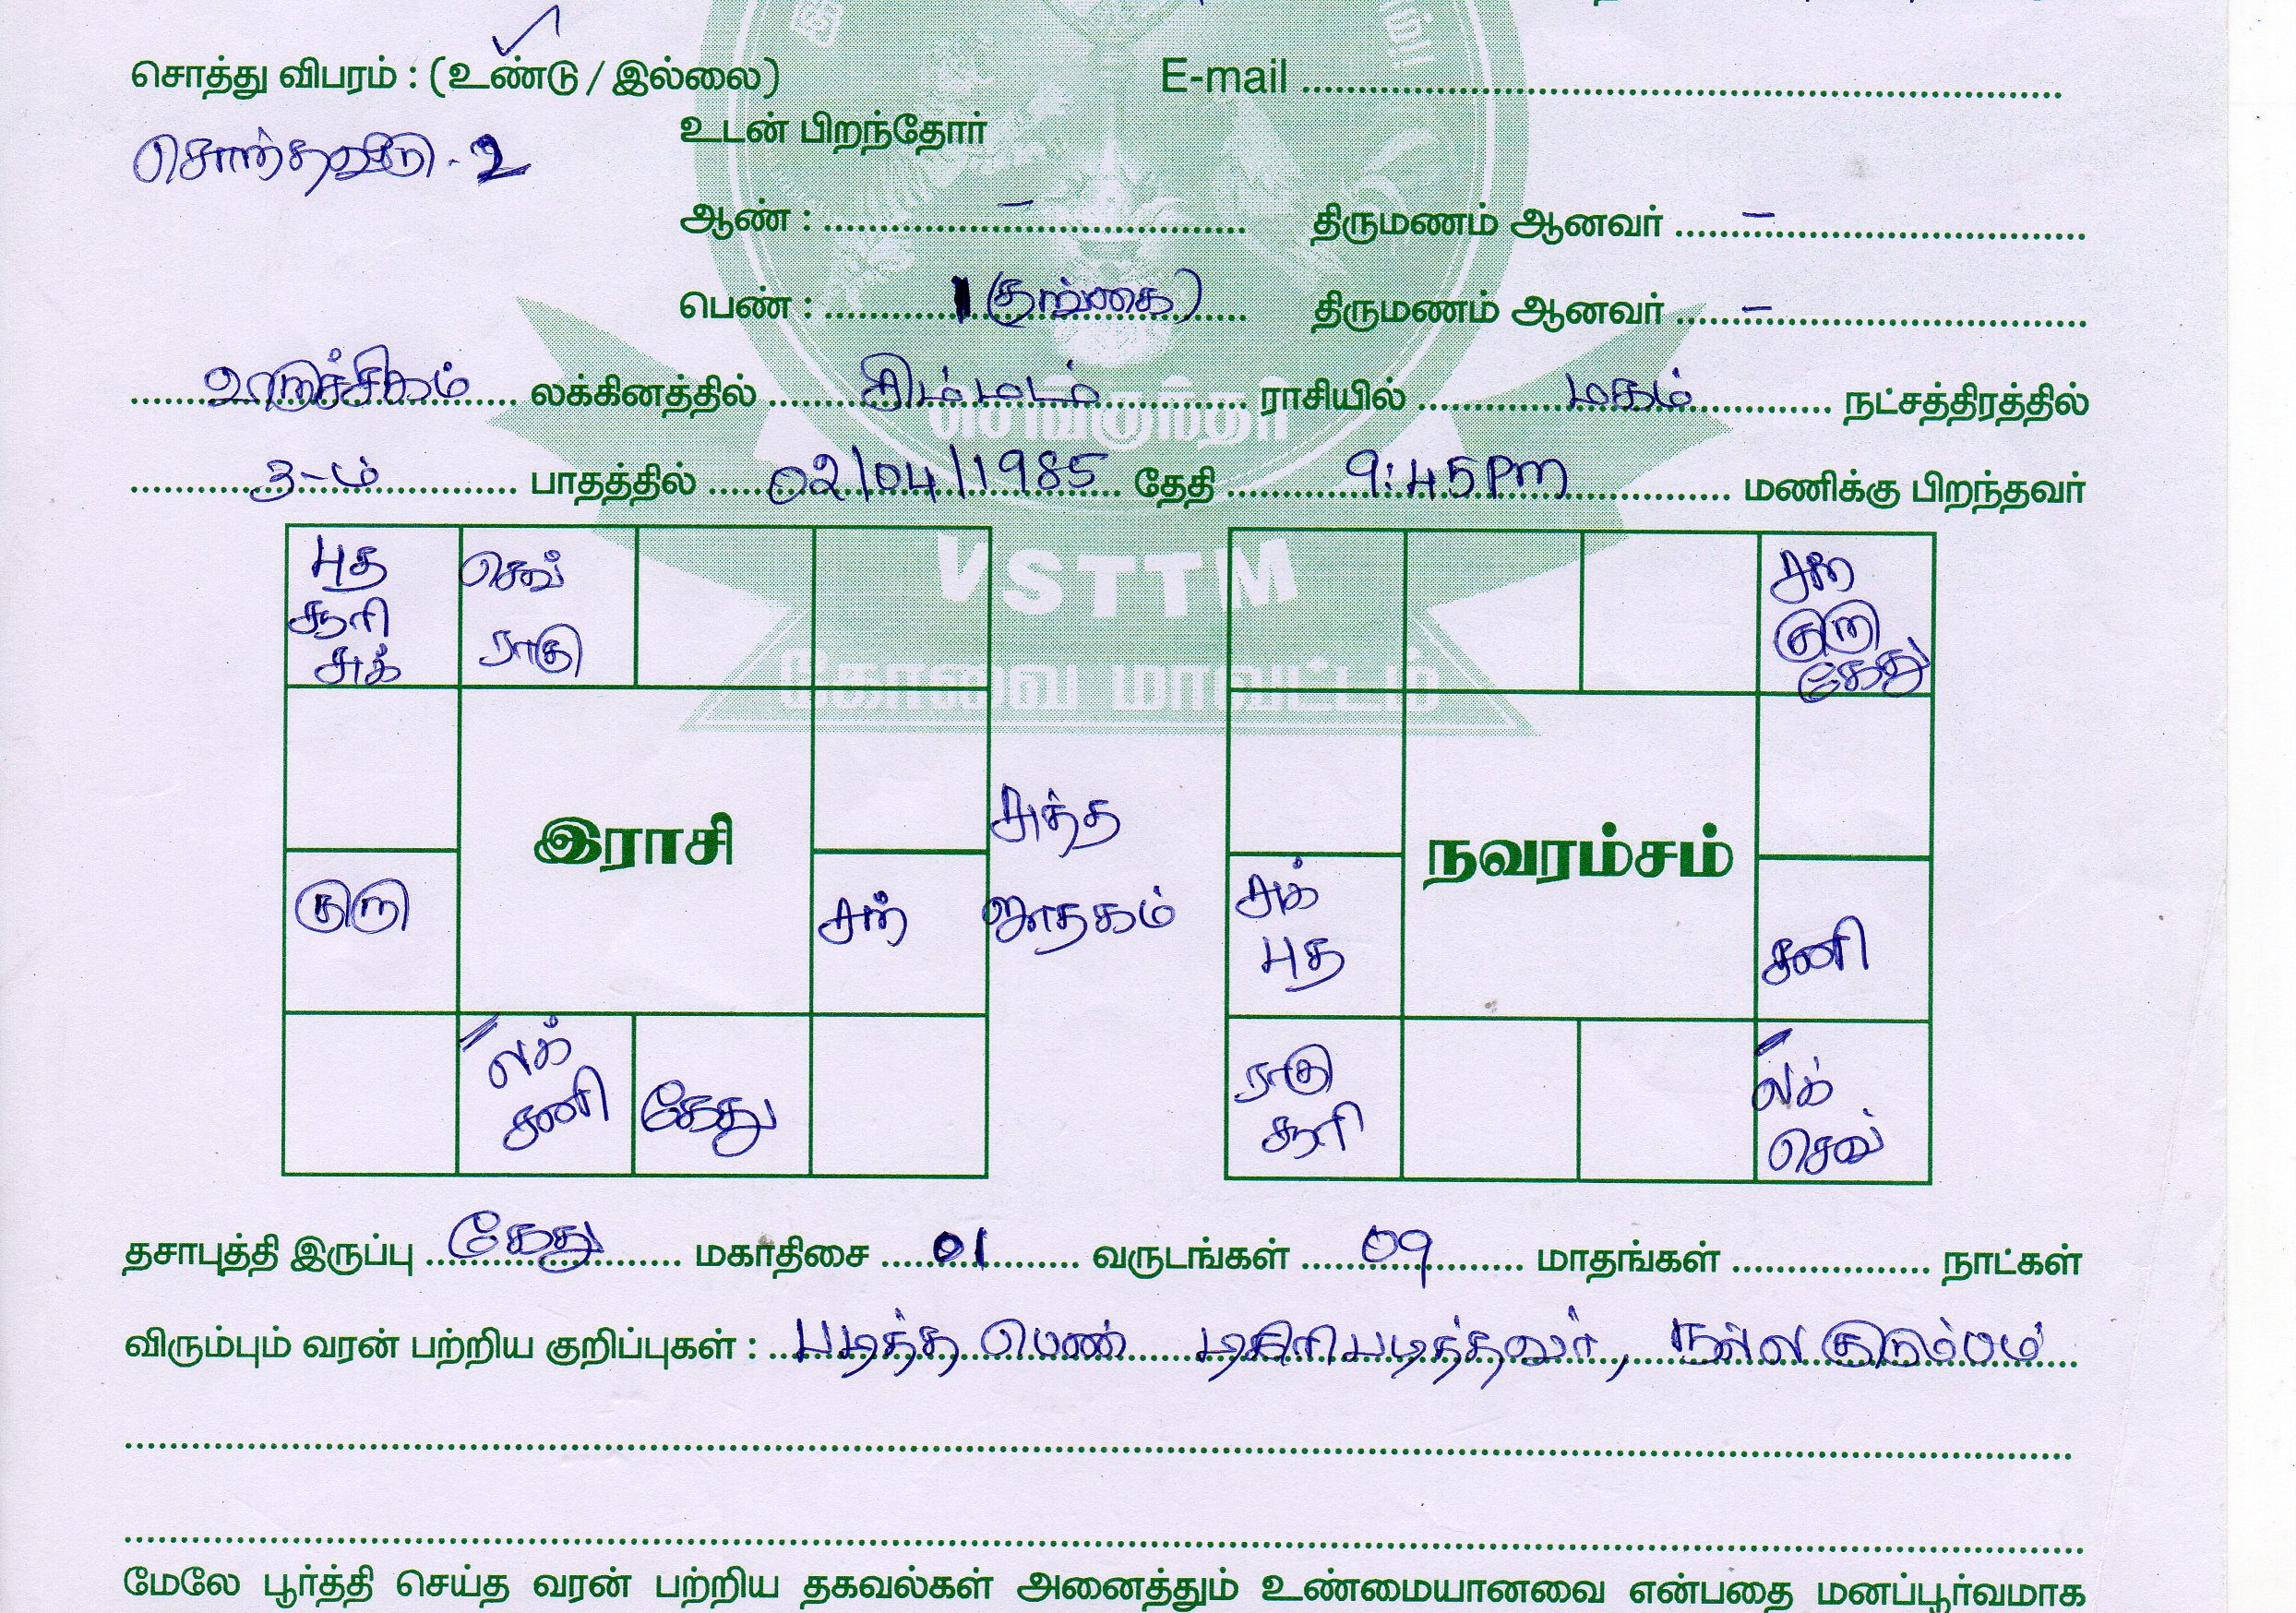 சொத்து விபரம் : (உண்டு / இல்லை) E-mail
சொந்தவீடு - 2
உடன் பிறந்தோர்
ஆண் : – திருமணம் ஆனவர் –
பெண் : 1 (தங்கை) திருமணம் ஆனவர் –
விருச்சிகம் லக்கினத்தில் சிம்மம் ராசியில் மகம் நட்சத்திரத்தில்
3-ம் பாதத்தில் 02/04/1985 தேதி 9:45 PM மணிக்கு பிறந்தவர்
செங்குந்தர்
VSTTM
கோவை மாவட்டம்
புத
சூரி
சுக்
செவ்
ராகு
குரு
இராசி
சந்
லக்
சனி
கேது
சுத்த
ஜாதகம்
சந்
குரு
கேது
சுக்
புத
நவரம்சம்
சனி
ராகு
சூரி
லக்
செவ்
தசாபுத்தி இருப்பு கேது மகாதிசை 01 வருடங்கள் 09 மாதங்கள் நாட்கள்
விரும்பும் வரன் பற்றிய குறிப்புகள் : படித்த பெண் டிகிரி படித்தவர், நல்ல குடும்பம்
மேலே பூர்த்தி செய்த வரன் பற்றிய தகவல்கள் அனைத்தும் உண்மையானவை என்பதை மனப்பூர்வமாக